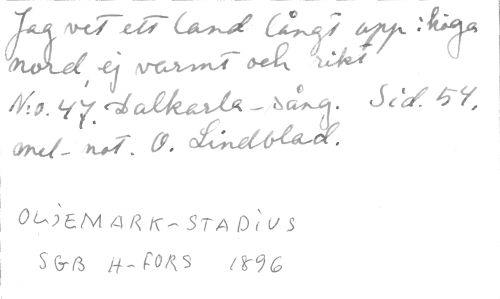 Jag vet ett land långt upp i höga
nord, ej varmt och rikt
N:o. 47. Dalkarla-sång. Sid. 54.
mel- not. O. Lindblad.
OLJEMARK-STADIUS
SGB H-FORS 1896